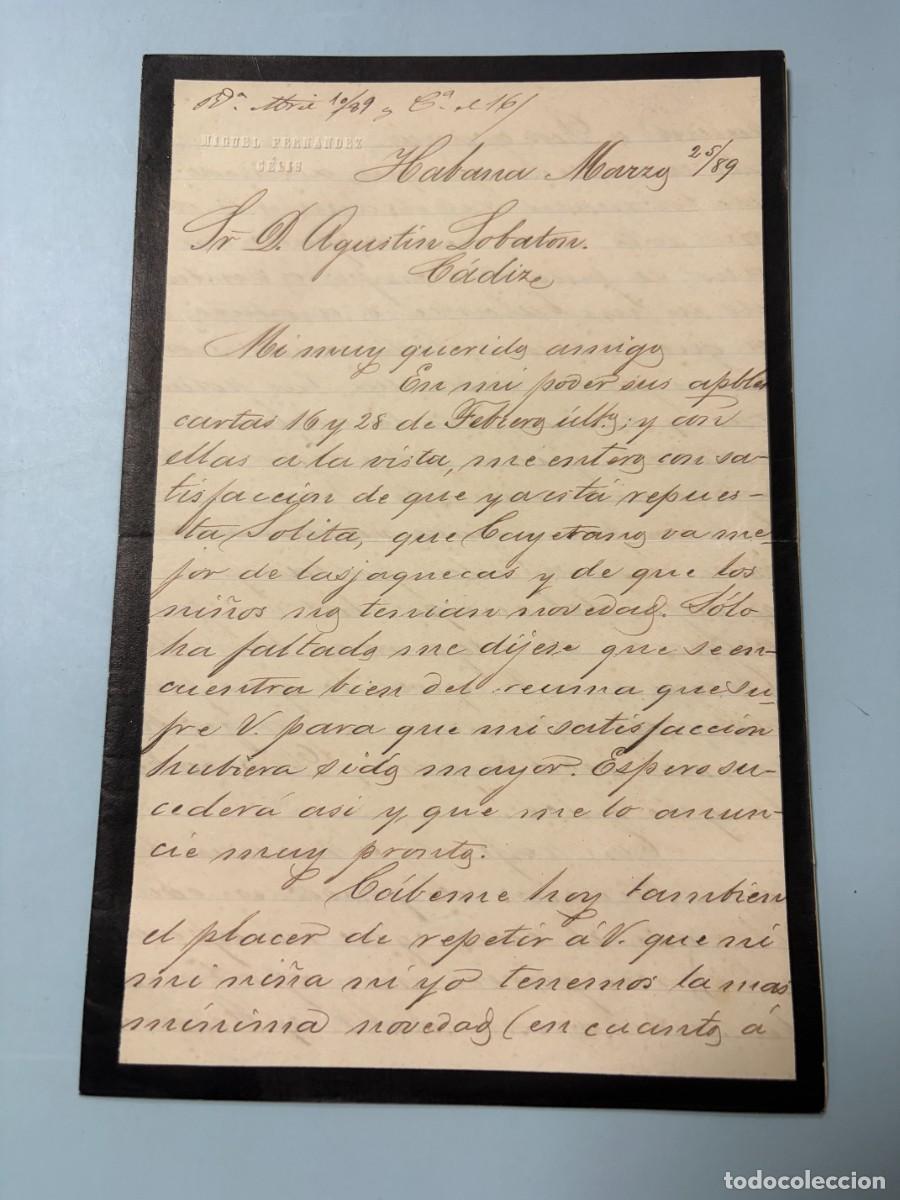 Rda. Abril 10/89 y Ca. el 16/
MIGUEL FERNANDEZ
CÉLIS
Habana Marzo 25/89
Sr. D. Agustín Lobatón.
Cádiz
Mi muy querido amigo
En mi poder sus apbles
cartas 16 y 28 de Febrero últo; y con
ellas a la vista, me entero con sa-
tisfacción de que ya está repues-
ta Solita, que Cayetano va me-
jor de las jaquecas y de que los
niños no tenian novedad. Sólo
ha faltado me dijese que se en-
cuentra bien del reuma que su-
fre V. para que mi satisfacción
hubiera sido mayor. Espero su-
cederá asi y que me lo anun-
cie muy pronto.
Cábeme hoy tambien
el placer de repetir á V. que ni
mi niña ni yo tenemos la mas
minima novedad (en cuanto á
todocoleccion